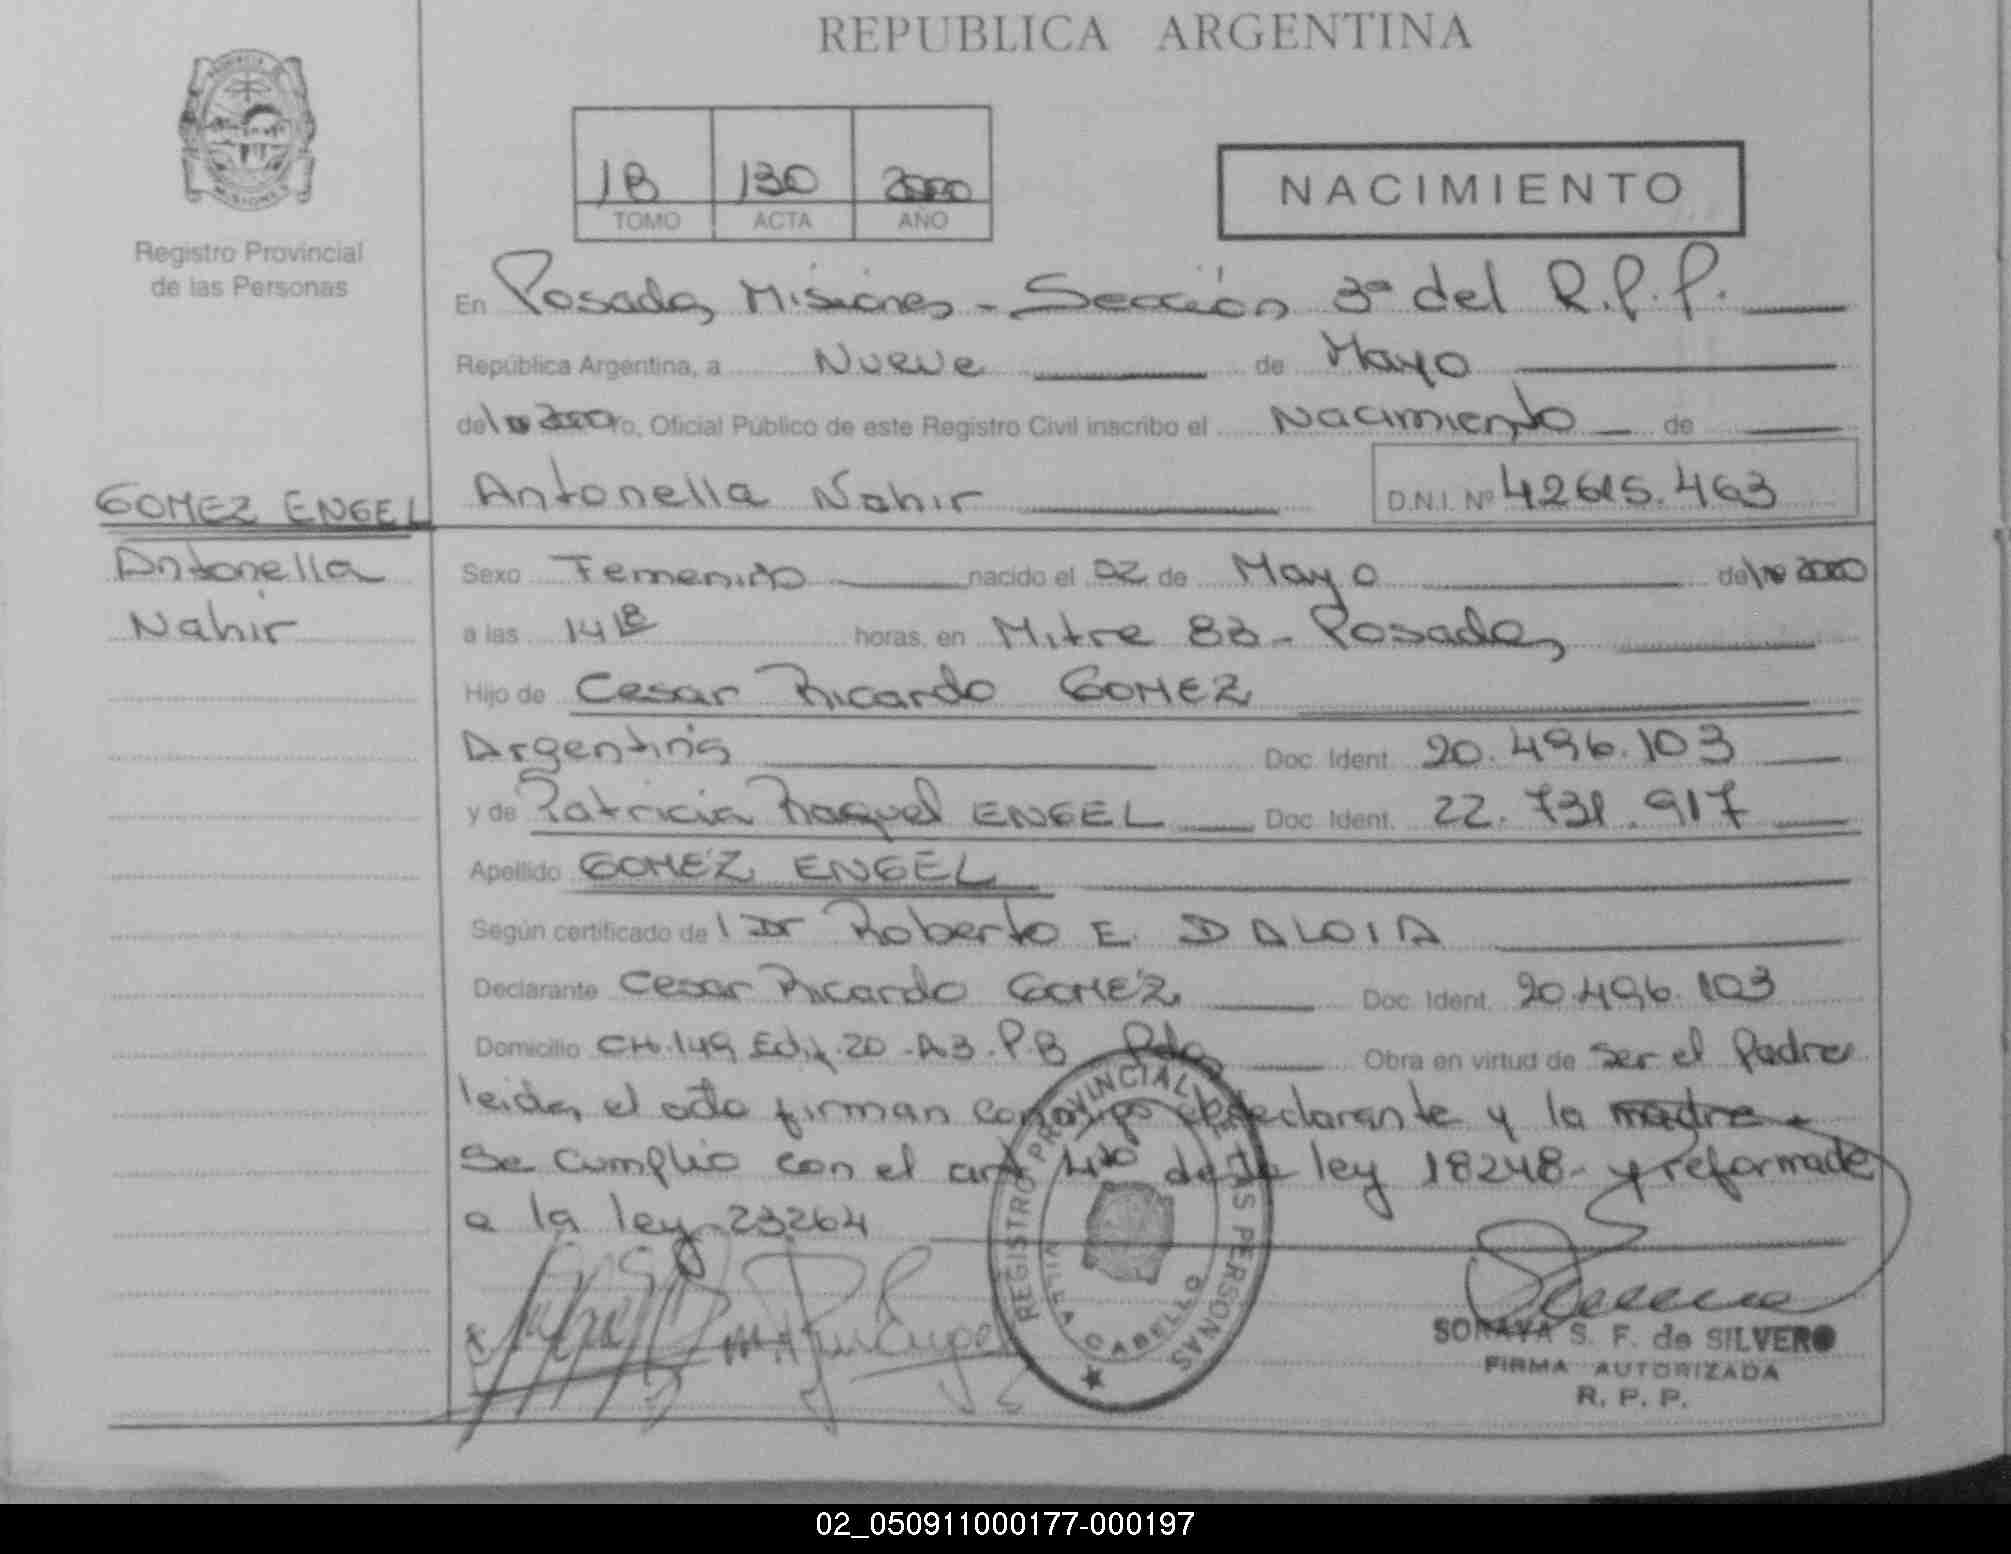 REPUBLICA ARGENTINA
PROVINCIA DE
MISIONES
Registro Provincial
de las Personas
1B 130 2000
TOMO ACTA AÑO
NACIMIENTO
En Posadas Misiones - Sección 3ª del R.P.P.
República Argentina, a Nueve de Mayo
del 2000 Yo, Oficial Público de este Registro Civil inscribo el Nacimiento de
GOMEZ ENGEL
Antonella Nahir D.N.I. Nº 42615.463
Antonella
Nahir
Sexo Femenino nacido el 02 de Mayo de 2000
a las 14 horas, en Mitre 83 - Posadas
Hijo de Cesar Ricardo GOMEZ
Argentinos Doc. Ident. 20.496.103
y de Patricia Raquel ENGEL Doc. Ident. 22.731.917
Apellido GOMEZ ENGEL
Según certificado del Dr Roberto E. DALOIA
Declarante Cesar Ricardo GOMEZ Doc. Ident. 20.496.103
Domicilio CH.149 Edif.20 - A3 - P.B Pdas Obra en virtud de ser el Padre
leida el acta firman conmigo el declarante y la madre
se cumplio con el art 4to de la ley 18248 - y reformada
a la ley 23264
REGISTRO PROVINCIAL DE LAS PERSONAS
VILLA CABELLO
SORAYA S. F. de SILVERO
FIRMA AUTORIZADA
R. P. P.
02_050911000177-000197